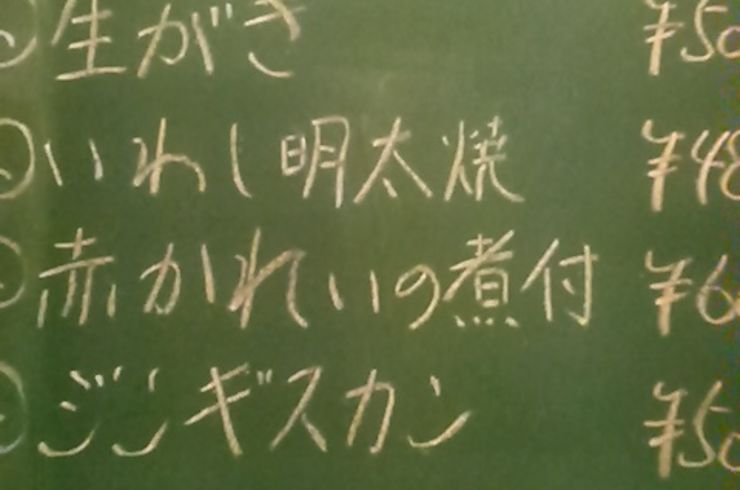 生がき ¥50
いわし明太焼 ¥48
赤かれいの煮付 ¥6
ジンギスカン ¥50